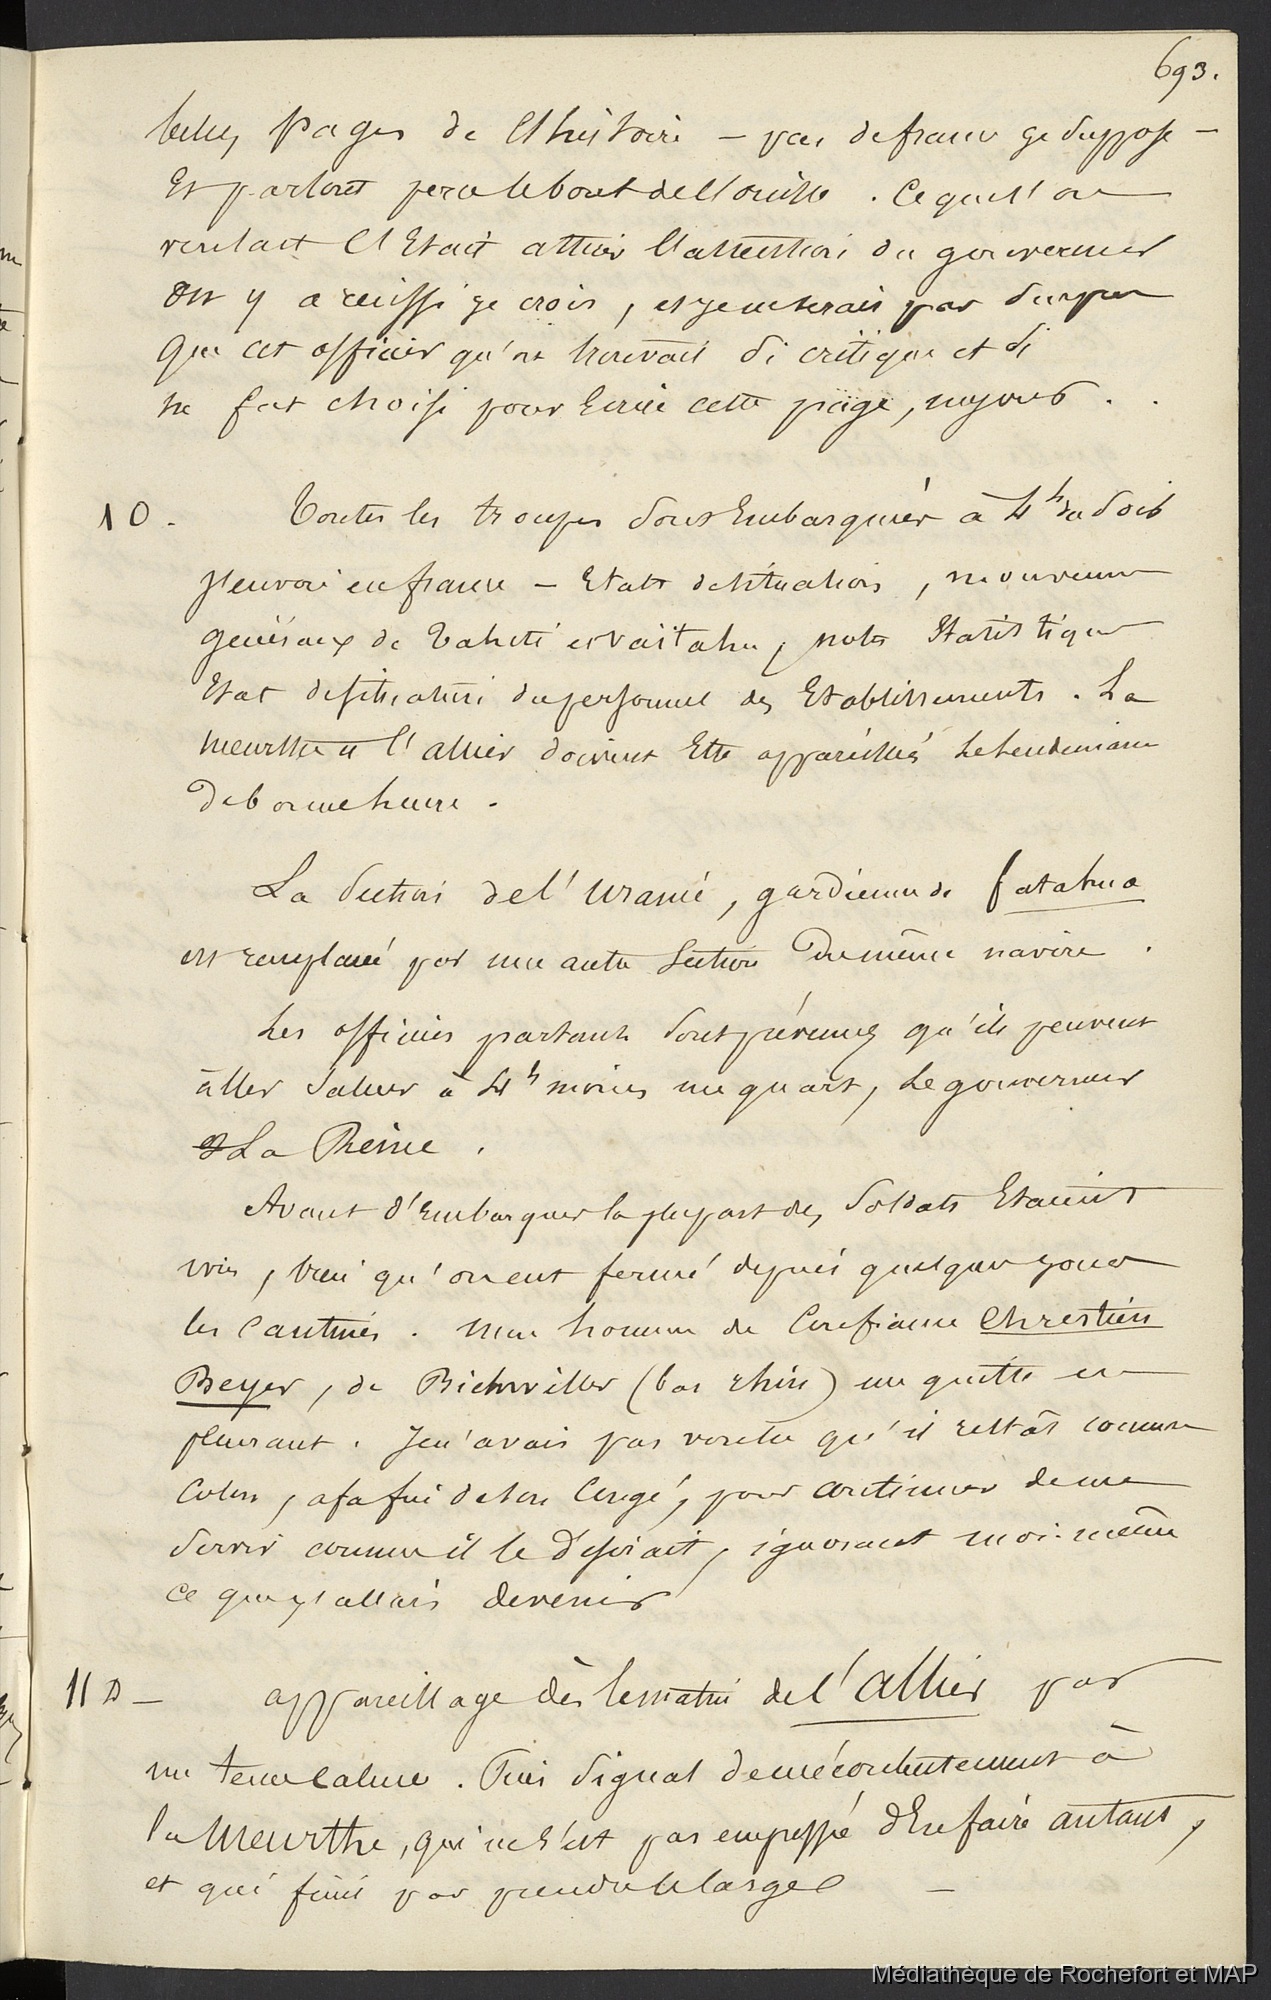 693.
belles pages de l'histoire – pas de france je suppose –
Et partout perce le bout de l'oreille. Ce que l'on
voulait c'Etait attirer l'attention du gouverneur
On y a reussi je crois, et je ne serais pas surpris
que cet officier qu'on trouvait si critique et si
ne fut choisi pour Ecrire cette page,
10. Toutes les troupes sont Embarquées à 4h du soir
J'envoie en france – Etats de situation, mouvements
généraux de Tahiti et Vaitahu, notes Statistiques
Etat de situation du personnel des Etablissements. La
meurthe et l'allier doivent Etre appareillés le lendemain
de bonne heure.
La section de l'uranie, gardienne de fatahua
est remplacée par une autre section du même navire.
Les officiers partants sont prévenus qu'ils peuvent
aller saluer à 4h moins un quart, le gouverneur
et La Reine.
Avant d'embarquer la plupart des soldats Etaient
ivres, bien qu'on eut fermé depuis quelques jours
les cantines. Mon homme de confiance Chrestien
Beyer, de Bichwiller (bas rhin) me quitte en
pleurant. Je n'avais pas voulu qu'il restât comme
colon, a sa fin de son congé, pour continuer de me
servir comme il le désirait, ignorant moi-même
ce que j'allais devenir
11 D – appareillage dès le matin de l'allier par
un tems calme. Puis signal de mécontentement à
la Meurthe, qui ne s'est pas empressé d'En faire autant,
et qui finit par prendre le large –
Médiathèque de Rochefort et MAP